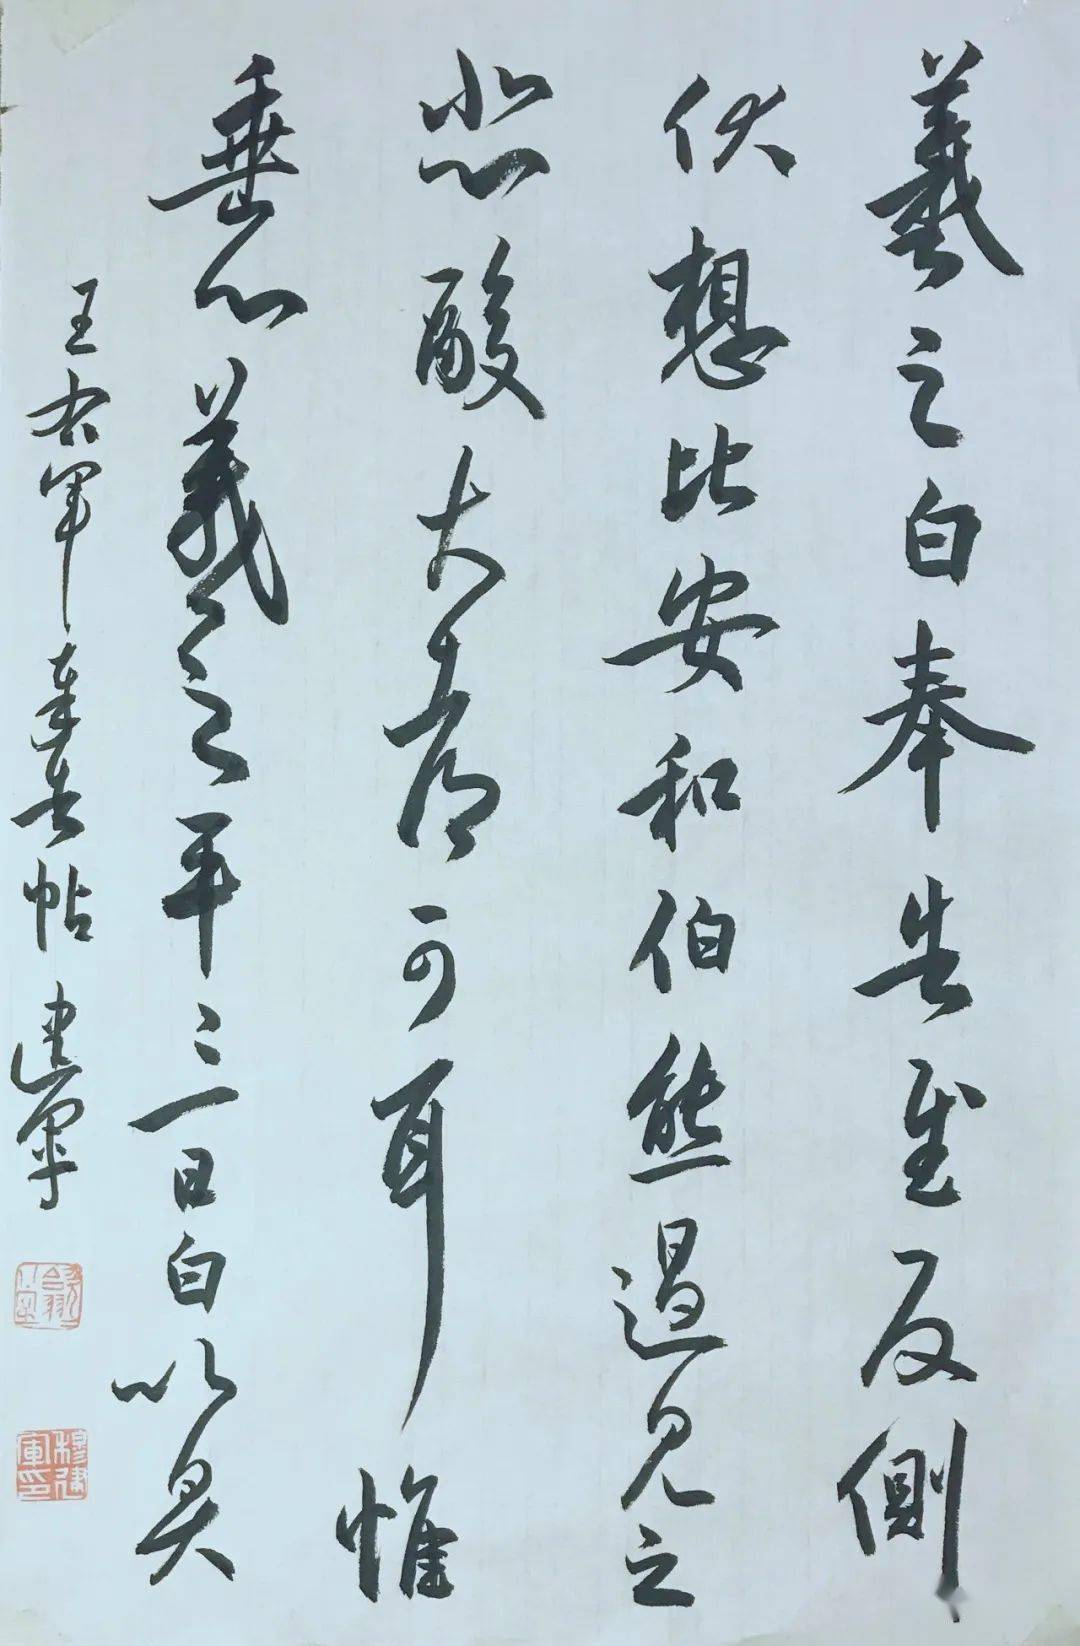 羲之白奉告至反側
伏想比安和伯熊過見之
悲酸大可耳惟
垂心羲之平三日白以具
王右軍告帖建軍
穆建軍印